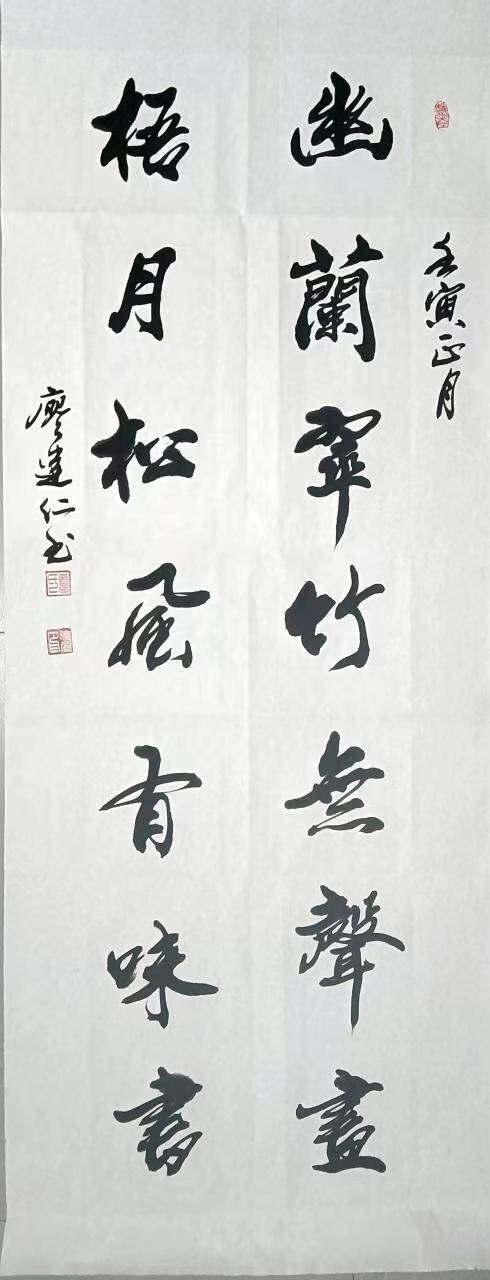 壬寅正月
幽蘭翠竹無聲畫
梧月松風有味書
廖建仁书